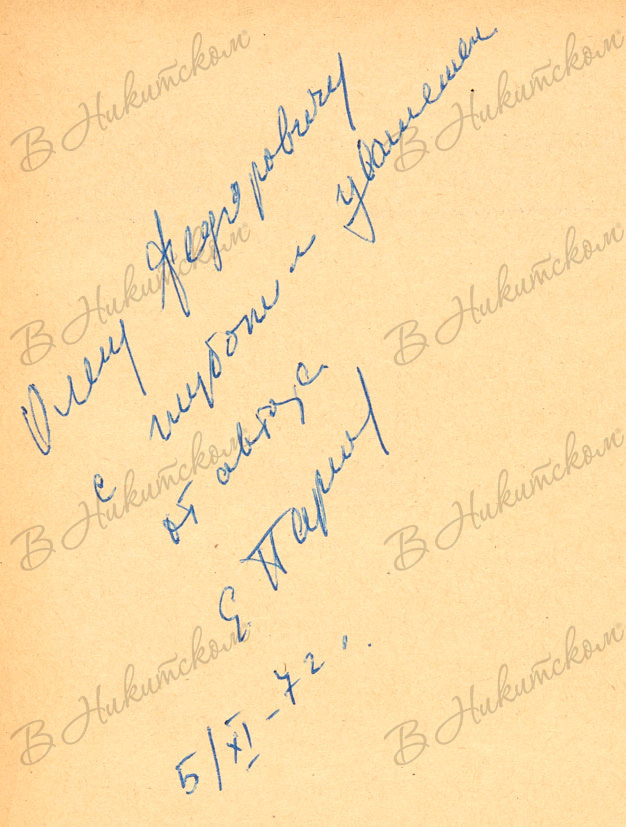 Олегу Федоровичу
с глубоким уважением
от автора
Е. Парнов
5/XI-72 г.
В Никитском
В Никитском
В Никитском
В Никитском
В Никитском
В Никитском
В Никитском
В Никитском